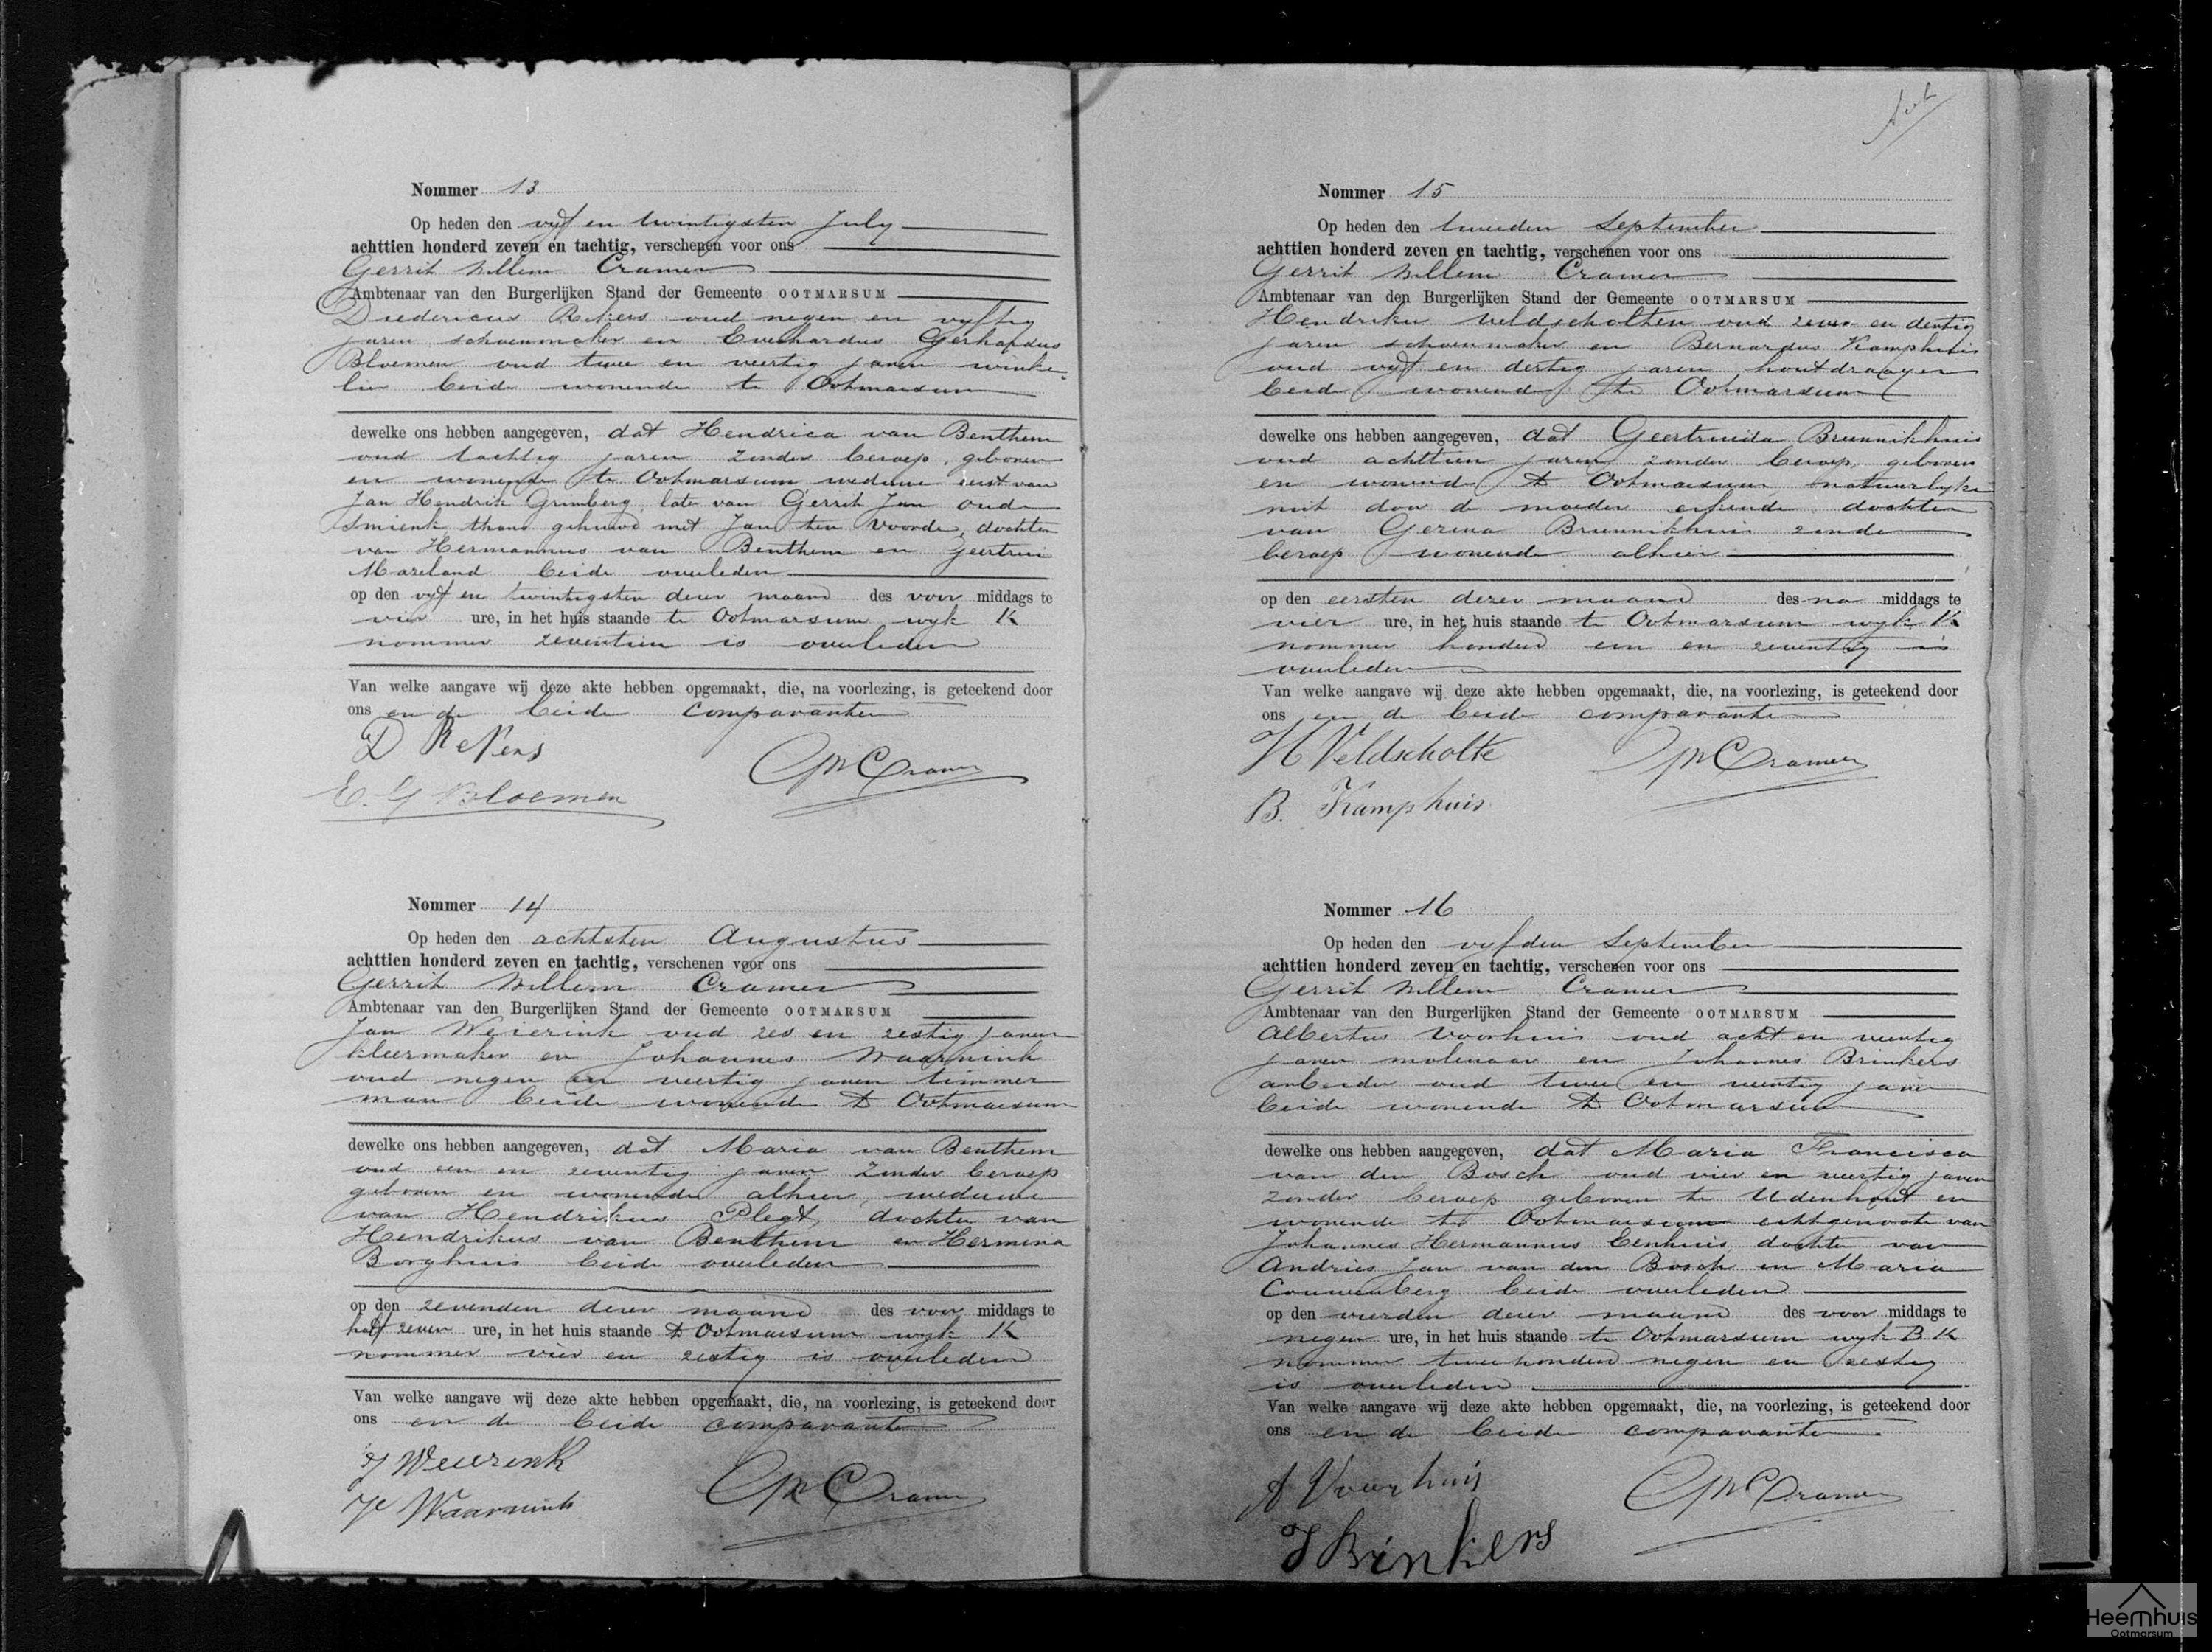 Nommer 13
Op heden den vyf en twintigsten July
achttien honderd zeven en tachtig, verschenen voor ons
Gerrit Willem Cramer
Ambtenaar van den Burgerlijken Stand der Gemeente OOTMARSUM
Diedericus Rekers oud negen en vyftig
jaren schoenmaker en Everhardus Gerhardus
Bloemen oud twee en veertig jaren winke-
lier beide wonende te Ootmarsum
dewelke ons hebben aangegeven, dat Hendrica van Benthem
oud tachtig jaren zonder beroep, geboren
en wonende te Ootmarsum weduwe eerst van
Jan Hendrik Grimberg, later van Gerrit Jan oude
Smienk thans gehuwd met Jan ten Voorde, dochter
van Hermannus van Benthem en Geertrui
Mareland beide overleden
op den vyf en twintigsten dezer maand des voor middags te
vier ure, in het huis staande te Ootmarsum wyk K
nommer zeventien is overleden
Van welke aangave wij deze akte hebben opgemaakt, die, na voorlezing, is geteekend door
ons en de beide comparanten
D Rekers
GW Cramer
E. G Bloemen
Nommer 14
Op heden den achtsten Augustus
achttien honderd zeven en tachtig, verschenen voor ons
Gerrit Willem Cramer
Ambtenaar van den Burgerlijken Stand der Gemeente OOTMARSUM
Jan Weierink oud zes en zestig jaren
kleermaker en Johannes Waarmink
oud negen en veertig jaren timmer
man beide wonende te Ootmarsum
dewelke ons hebben aangegeven, dat Maria van Benthem
oud een en zeventig jaren zonder beroep
geboren en wonende alhier, weduwe
van Hendrikus Plegt, dochter van
Hendrikus van Benthem en Hermina
Borghuis beide overleden
op den zevenden dezer maand des voor middags te
half zeven ure, in het huis staande te Ootmarsum wyk K
nommer vier en zestig is overleden
Van welke aangave wij deze akte hebben opgemaakt, die, na voorlezing, is geteekend door
ons en de beide comparanten
J Weierink
GW Cramer
Waarmink
Nommer 15
Op heden den tweeden September
achttien honderd zeven en tachtig, verschenen voor ons
Gerrit Willem Cramer
Ambtenaar van den Burgerlijken Stand der Gemeente OOTMARSUM
Hendrikus Veldscholten oud zeven en dertig
jaren schoenmaker en Bernardus Kamphuis
oud vyf en dertig jaren houtdraayer
beide wonende te Ootmarsum
dewelke ons hebben aangegeven, dat Geertruida Brunnikhuis
oud achttien jaren zonder beroep, geboren
en wonende te Ootmarsum, natuurlyke
niet door de moeder erkende dochter
van Gerina Brunnikhuis zonder
beroep wonende alhier
op den eersten dezer maand des na middags te
vier ure, in het huis staande te Ootmarsum wyk K
nommer honderd een en zeventig is
overleden
Van welke aangave wij deze akte hebben opgemaakt, die, na voorlezing, is geteekend door
ons en de beide comparanten
H Veldscholte
GW Cramer
B. Kamphuis
Nommer 16
Op heden den vyfden September
achttien honderd zeven en tachtig, verschenen voor ons
Gerrit Willem Cramer
Ambtenaar van den Burgerlijken Stand der Gemeente OOTMARSUM
Albertus Voorhuis oud acht en veertig
jaren molenaar en Johannes Brinkers
arbeider oud twee en veertig jaren
beide wonende te Ootmarsum
dewelke ons hebben aangegeven, dat Maria Francisca
van den Bosch oud vier en veertig jaren
zonder beroep geboren te Udenhout en
wonende te Ootmarsum echtgenoote van
Johannes Hermannus Eenhuis, dochter van
Andries Jan van den Bosch en Maria
Couwenberg beide overleden
op den vierden dezer maand des voor middags te
negen ure, in het huis staande te Ootmarsum wyk B K
nommer tweehonderd negen en zestig
is overleden
Van welke aangave wij deze akte hebben opgemaakt, die, na voorlezing, is geteekend door
ons en de beide comparanten
A Voorhuis
GW Cramer
J Brinkers
Heemhuis
Ootmarsum